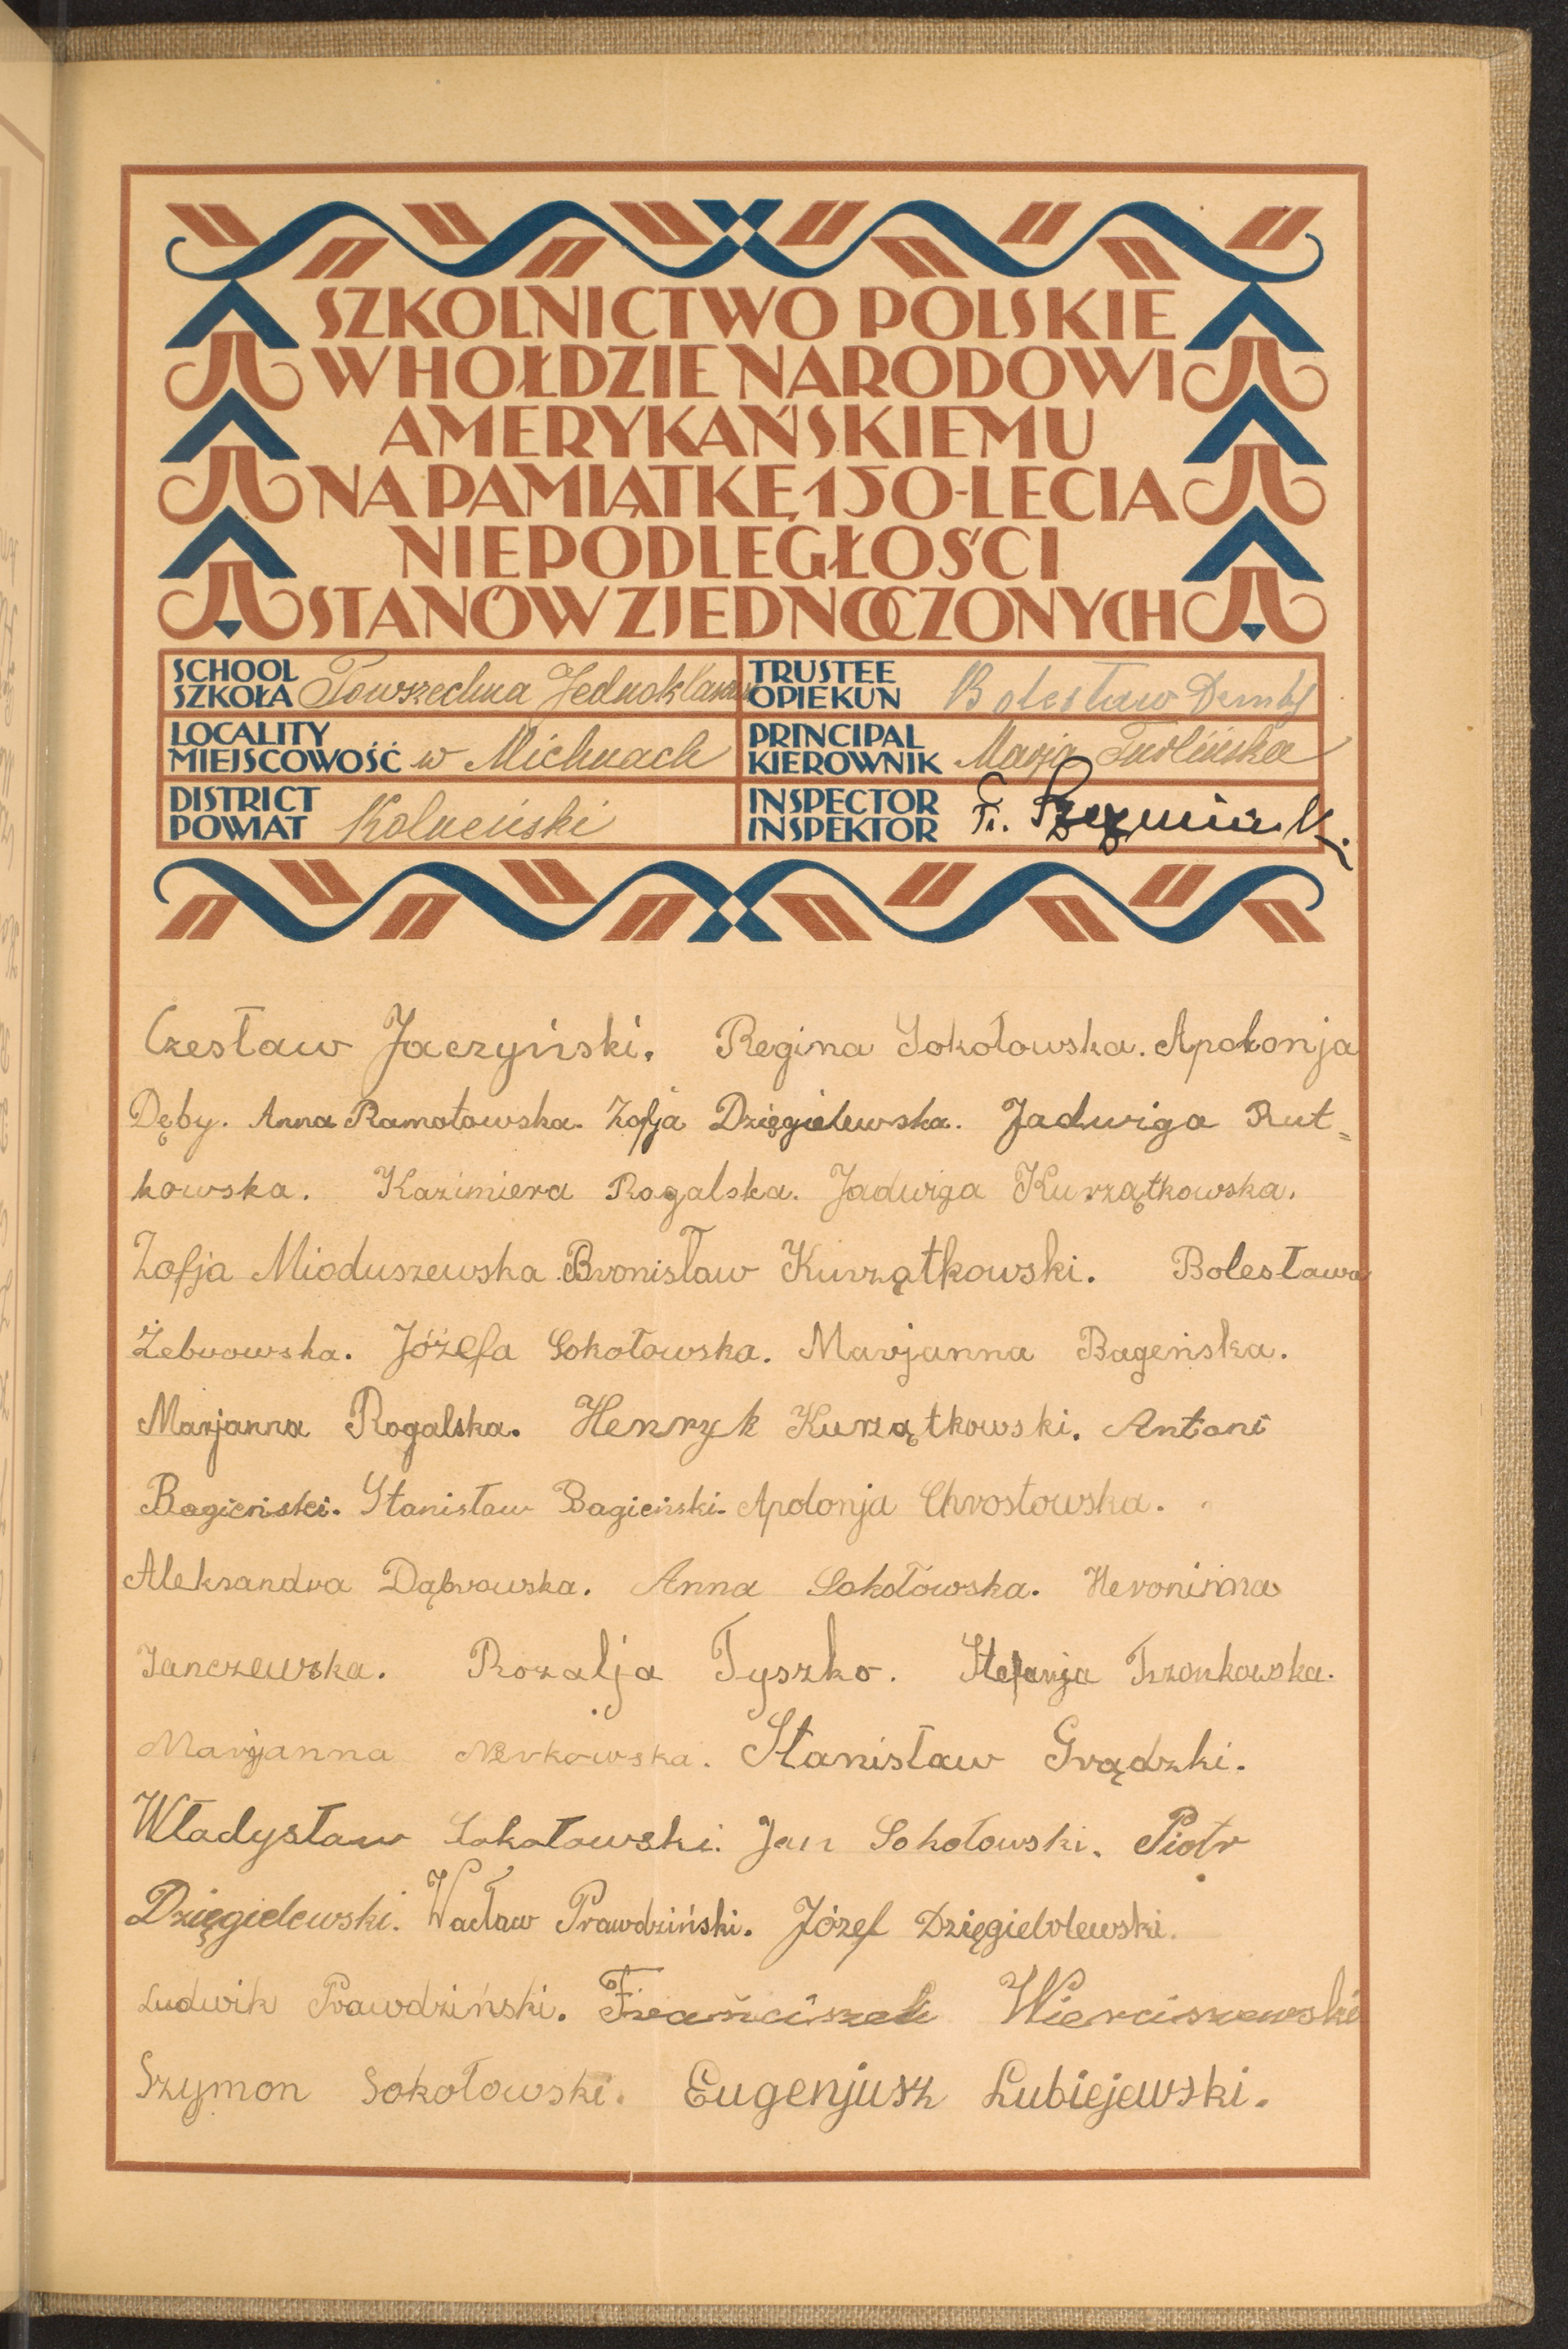 SZKOLNICTWO POLSKIE
W HOŁDZIE NARODOWI
AMERYKAŃSKIEMU
NA PAMIĄTKĘ 150-LECIA
NIEPODLEGŁOŚCI
STANÓW ZJEDNOCZONYCH
SCHOOL
SZKOŁA Powszechna Jednoklasowa
TRUSTEE
OPIEKUN Bolesław Demby
LOCALITY
MIEJSCOWOŚĆ w Michnach
PRINCIPAL
KIEROWNIK Marja
DISTRICT
POWIAT Kolneński
INSPECTOR
INSPEKTOR Fr.
Czesław Jaczyński. Regina Sokołowska. Apolonja
Dęby. Anna Ramotowska. Zofja Dzięgielewska. Jadwiga Rut=
kowska. Kazimiera Rogalska. Jadwiga Kurzątkowska.
Zofja Mioduszewska. Bronisław Kurzątkowski. Bolesława
Żebrowska. Józefa Sokołowska. Marjanna Bageńska.
Marjanna Rogalska. Henryk Kurzątkowski. Antoni
Bagieński. Stanisław Bagieński. Apolonja Chrostowska.
Aleksandra Dąbrowska. Anna Sokołowska. Heronima
Janczewska. Rozalja Tyszko. Stefanja Trzonkowska.
Marjanna Nerkowska. Stanisław Grądzki.
Władysław Sokołowski. Jan Sokołowski. Piotr
Dzięgielewski. Wacław Prawdziński. Józef Dzięgielolewski.
Ludwik Prawdziński. Franciszek Wierciszewski
Szymon Sokołowski. Eugenjusz Lubiejewski.